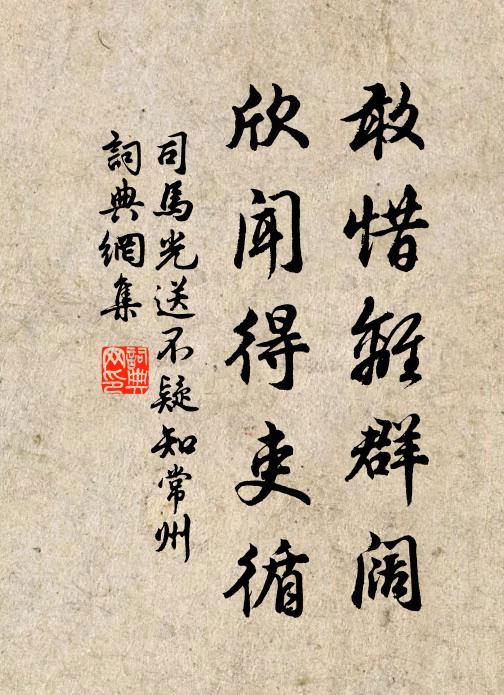 敢惜離群阔
欣闻得吏循
司馬光送不疑知常州
詞典網集
詞典網印